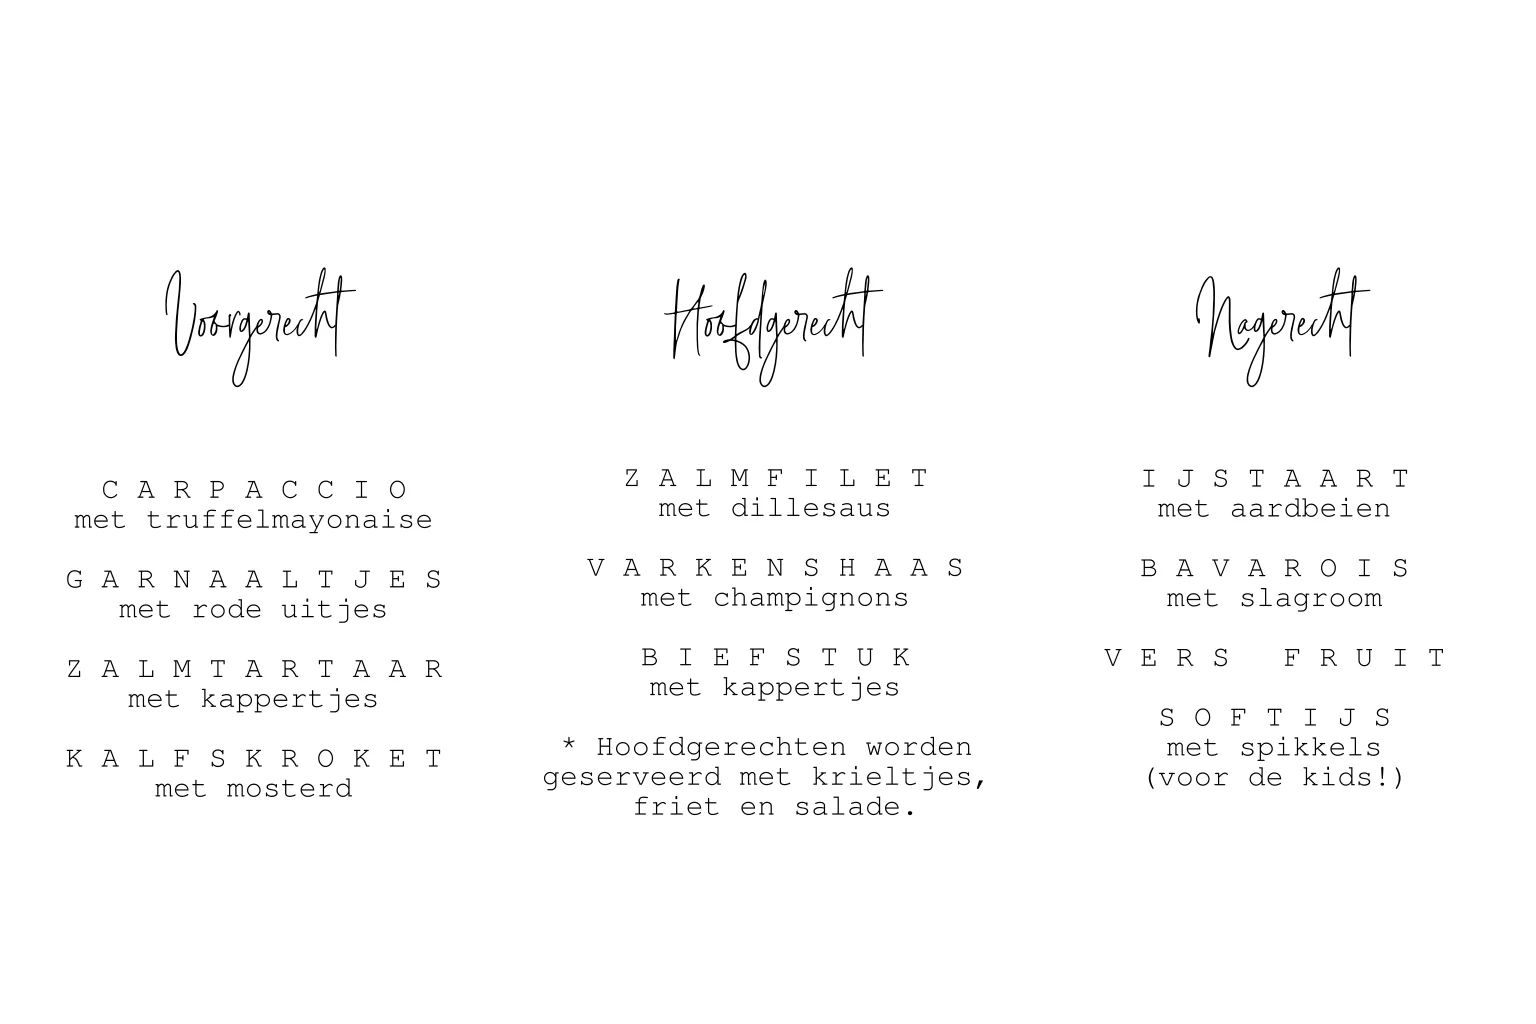 Voorgerecht
C A R P A C C I O
met truffelmayonaise
G A R N A A L T J E S
met rode uitjes
Z A L M T A R T A A R
met kappertjes
K A L F S K R O K E T
met mosterd
Hoofdgerecht
Z A L M F I L E T
met dillesaus
V A R K E N S H A A S
met champignons
B I E F S T U K
met kappertjes
* Hoofdgerechten worden
geserveerd met krieltjes,
friet en salade.
Nagerecht
I J S T A A R T
met aardbeien
B A V A R O I S
met slagroom
V E R S  F R U I T
S O F T I J S
met spikkels
(voor de kids!)